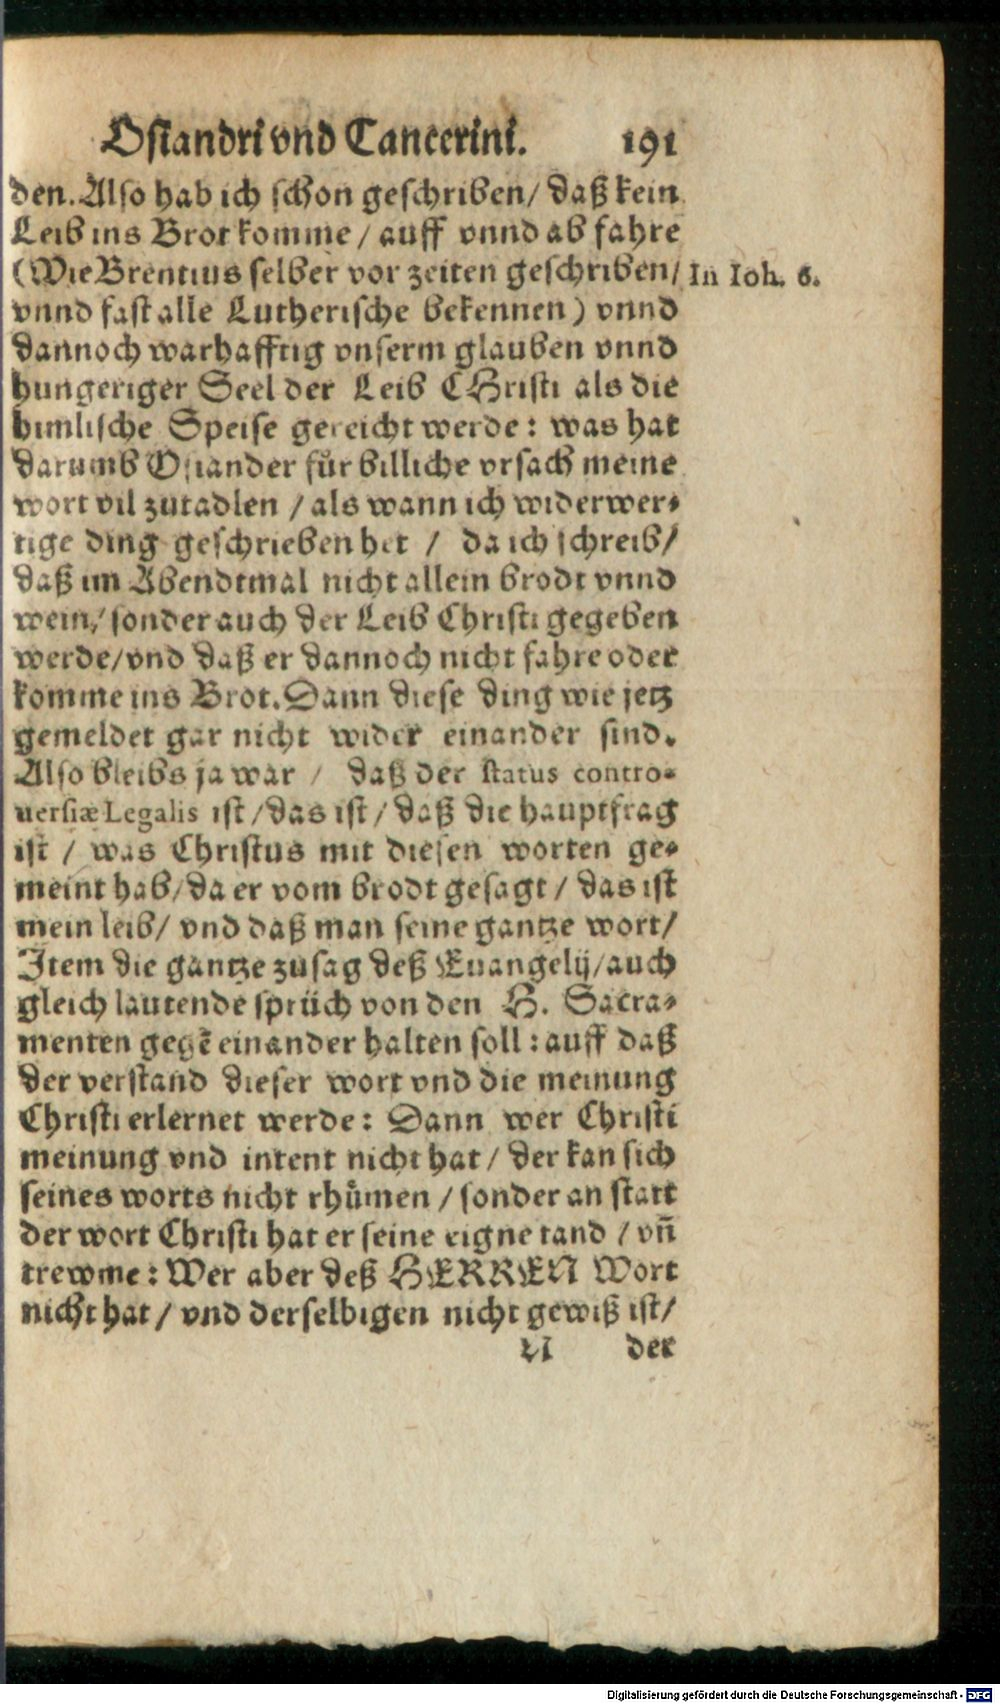 Osiandri vnd Cancerini. 191
den. Also hab ich schon geschriben / daß kein
Leib ins Brot komme / auff vnnd ab fahre
(Wie Brentius selber vor zeiten geschriben / In Ioh. 6.
vnnd fast alle Lutherische bekennen) vnnd
dannoch warhafftig vnserm glauben vnnd
hungeriger Seel der Leib CHristi als die
himlische Speise gereicht werde: was hat
darumb Osiander für billiche vrsach meine
wort vil zutadlen / als wann ich widerwer-
tige ding geschrieben het / da ich schreib /
daß im Abendtmal nicht allein brodt vnnd
wein / sonder auch der Leib Christi gegeben
werde / vnd daß er dannoch nicht fahre oder
komme ins Brot. Dann diese ding wie jetz
gemeldet gar nicht wider einander sind.
Also bleibs ja war / daß der status contro-
uersiæ Legalis ist / das ist / daß die hauptfrag
ist / was Christus mit diesen worten ge-
meint hab / da er vom brodt gesagt / das ist
mein leib / vnd daß man seine gantze wort /
Item die gantze zusag deß Euangelij / auch
gleich lautende sprüch von den H. Sacra-
menten gegē einander halten soll: auff daß
der verstand dieser wort vnd die meinung
Christi erlernet werde: Dann wer Christi
meinung vnd intent nicht hat / der kan sich
seines worts nicht rhůmen / sonder an statt
der wort Christi hat er seine eigne tand / vn̄
trewme: Wer aber deß HERREN Wort
nicht hat / vnd derselbigen nicht gewiß ist /
N der
Digitalisierung gefördert durch die Deutsche Forschungsgemeinschaft - DFG